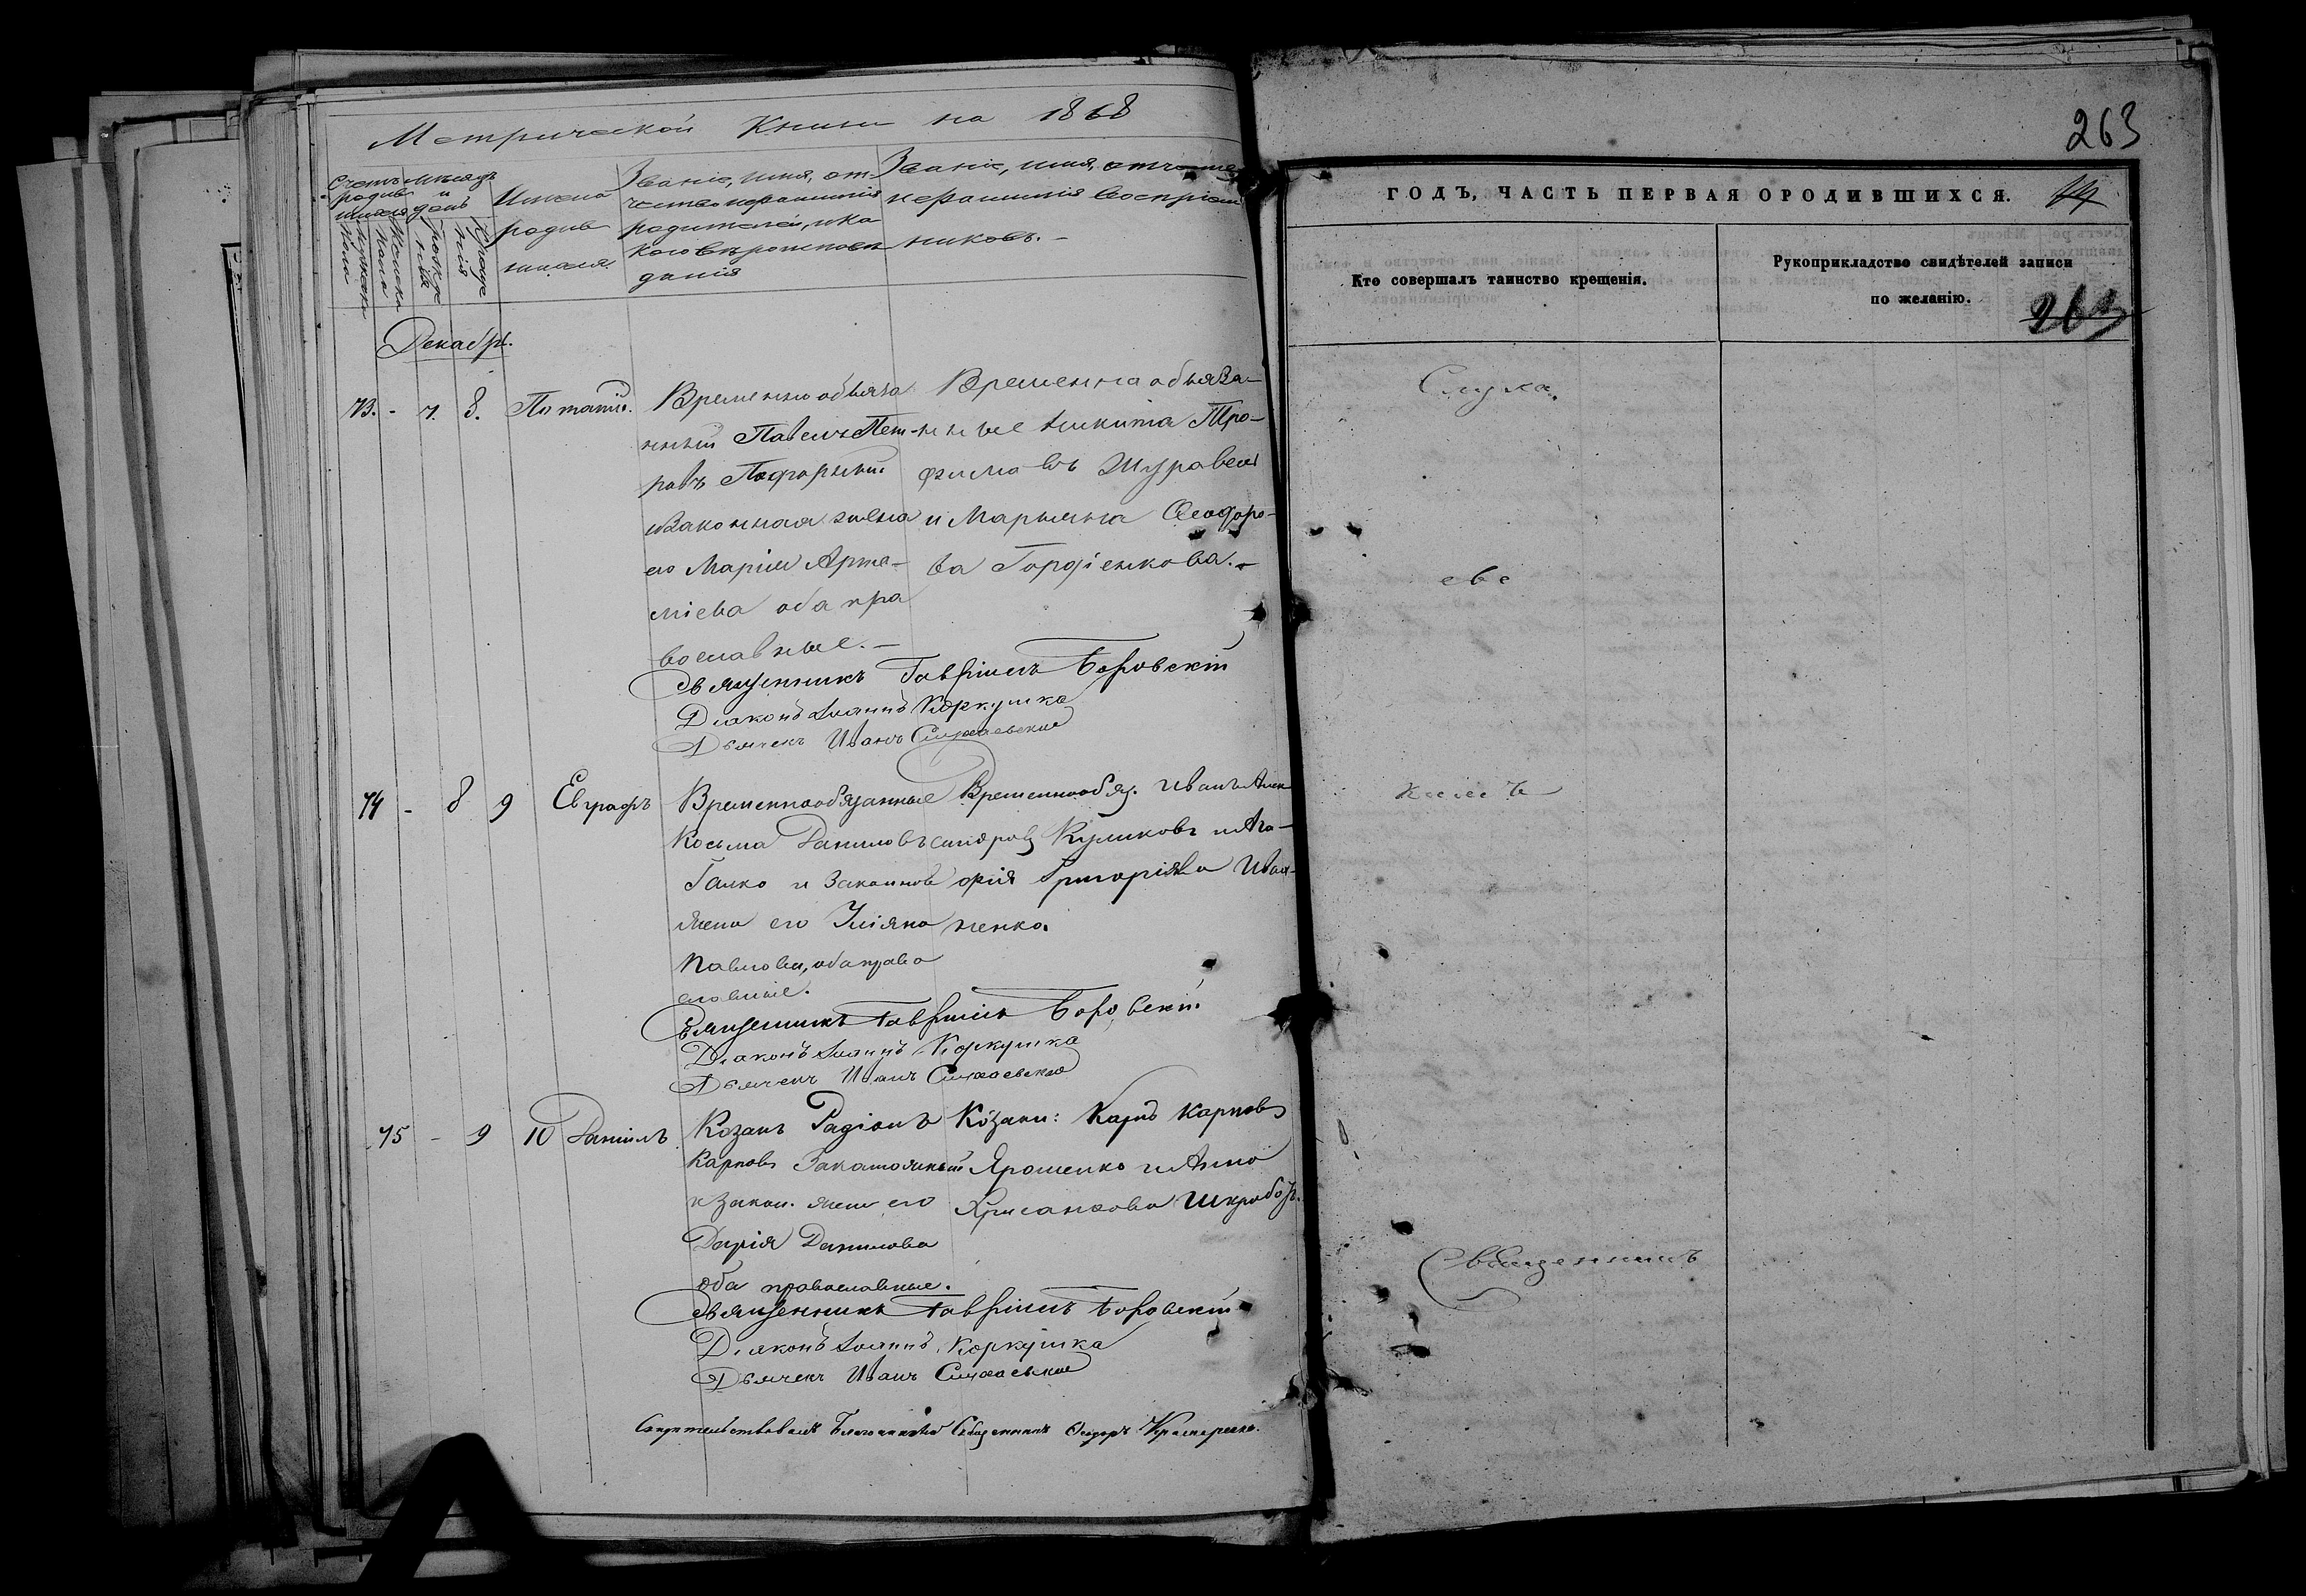 Метрической Книги на 1868
Счетъ родив шихся
Мужеска пола
Женска пола
Мѣсяцъ и день
рожде нія
креще нія
Имена родив шихся.
Званіе, имя, от-
чество и фамилія
родителей, и ка
кого вѣроисповѣ
данія
Званіе, имя, отчество
и фамилія воспріем
никовъ. -
Декабрь.
73. - 7. 8.
Временно обяза
нный Павелъ Пет-
ровъ
и Законная жена
его Марія Арте-
міева оба пра
вославные. -
Временно обяза-
нные Никита Тро-
фимовъ Журавель
и Марьяна Ѳеодоро-
ва Гордіенкова. -
Священникъ Гавріилъ Боровскій
Діаконъ Іоаннъ Коркушка
Дьячекъ Иванъ
74 - 8 9 Евграфъ
Временнообязанные
Косьма Даниловъ
Галко и Законная
жена его Уліяна
Павлова, оба право
славные.
Временнообяз. Иванъ Алек
сандровъ Куликовъ и Ага-
фія Григоріева Ива-
ненко.
Священникъ Гавріилъ Боровскій
Діаконъ Іоаннъ Коркушка
Дьячекъ Иванъ
75 - 9 10 Даніилъ
Козакъ Радіонъ
Карповъ
и Закон. жена его
Дарія Данилова
оба православные.
Козаки: Карпъ Карповъ
Ярошенко и Анна
Хрисанѳова
Священникъ Гавріилъ Боровскій
Діаконъ Іоаннъ Коркушка
Дьячекъ Иванъ
Свидѣтельствовалъ Благочинный Священникъ Ѳеодоръ
263
ГОДЪ, ЧАСТЬ ПЕРВАЯ О РОДИВШИХСЯ.
Кто совершалъ таинство крещенія.
Рукоприкладство свидѣтелей записи
по желанію.
263
Священникъ